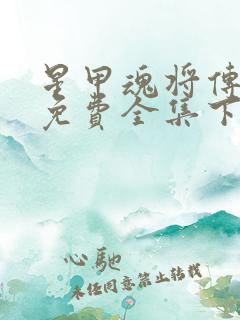 星甲魂将傳
免費全集下
心馳
未经同意禁止转载